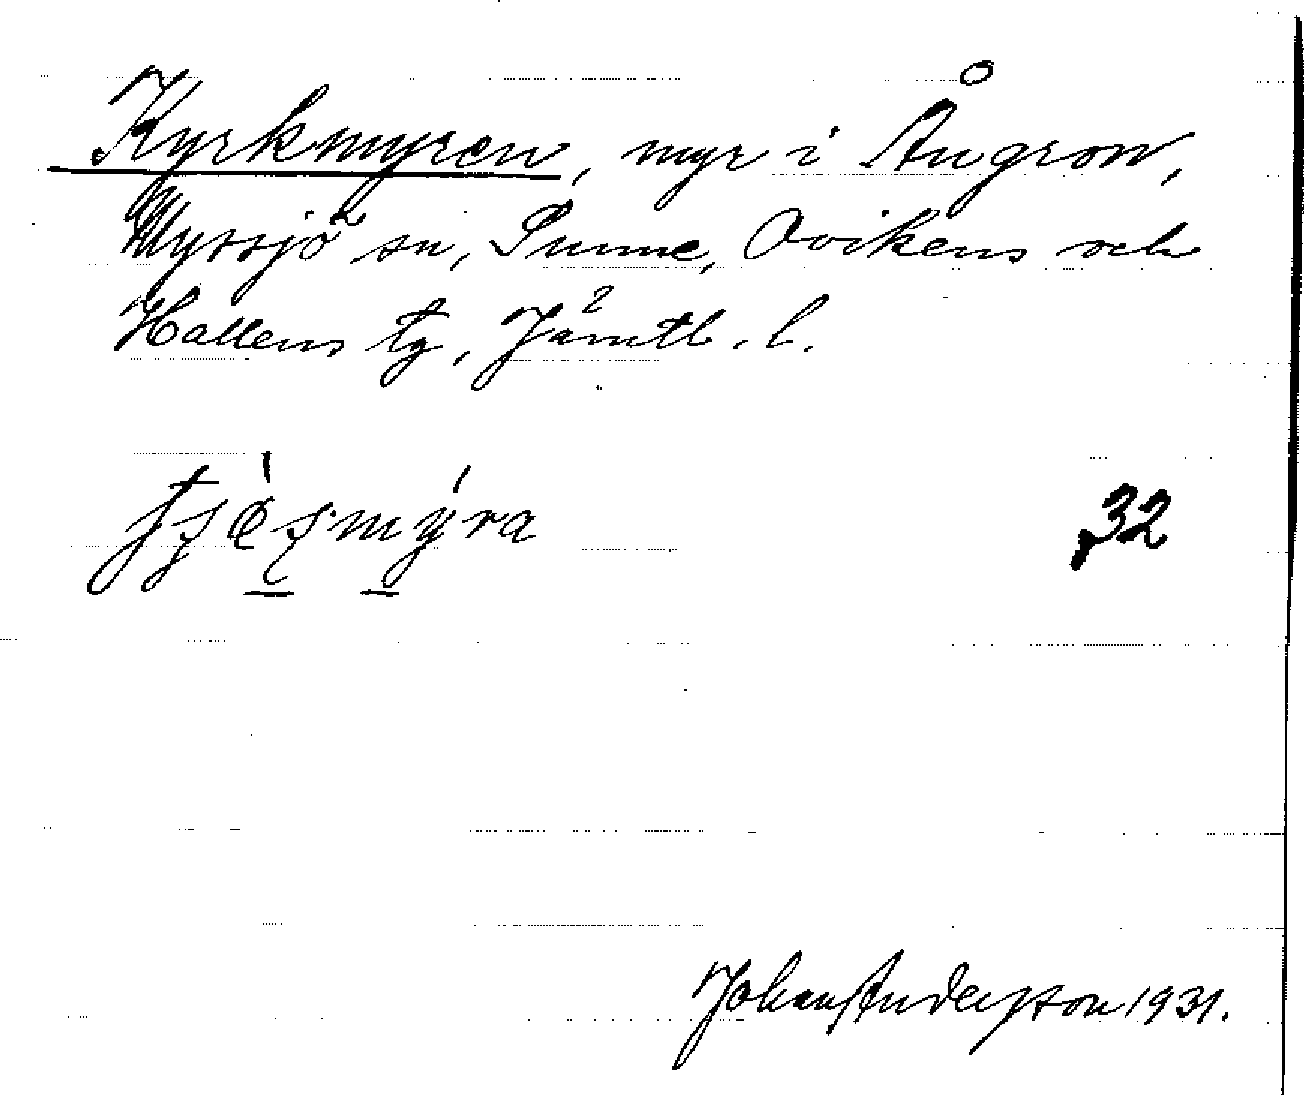 Kyrkmyren, myr i Ångron,
Myssjö sn, Sunne, Ovikens och
Hallens tg, Jämtl. l.
32
Johan Anderson 1931.